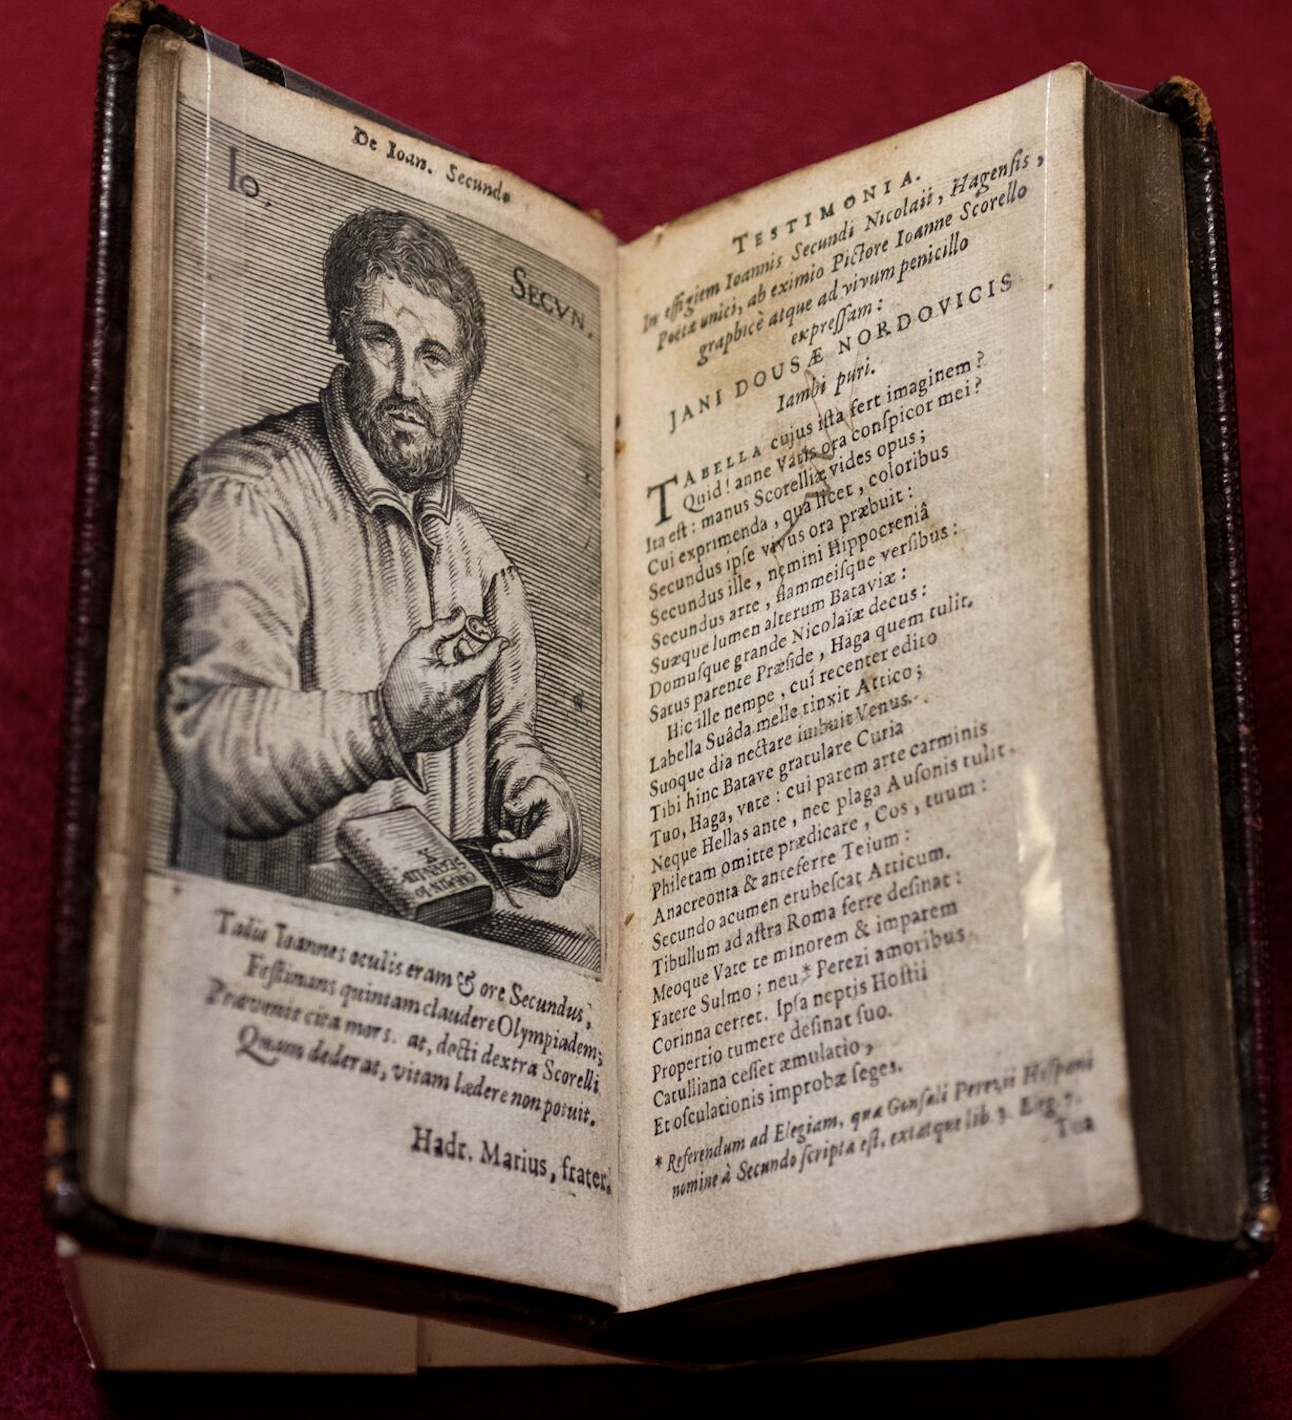 De Ioan. Secundo
Io.
SECVN.
CARMIN IO
SECVNDI
X
Talis Ioannes oculis eram & ore Secundus,
Festinans quintam claudere Olympiadem;
Prævenit cita mors. at, docti dextra Scorelli
Quam dederat, vitam lædere non potuit.
Hadr. Marius, frater.
TESTIMONIA.
In effigiem Ioannis Secundi Nicolaii, Hagensis,
Poëtæ unici, ab eximio Pictore Ioanne Scorello
graphicè atque ad vivum penicillo
expreſſam:
JANI DOUSÆ NORDOVICIS
Iambi puri.
TABELLA cujus iſta fert imaginem?
Quid! anne Vatis ora conſpicor mei?
Ita eſt: manus Scorelliæ vides opus;
Cui exprimenda, qua licet, coloribus
Secundus ipſe vivus ora præbuit:
Secundus ille, nemini Hippocreniâ
Secundus arte, flammeiſque verſibus:
Suæque lumen alterum Bataviæ:
Domuſque grande Nicolaïæ decus:
Satus parente Præſide, Haga quem tulit.
Hic ille nempe, cui recenter edito
Labella Suâda melle tinxit Attico;
Suoque dia nectare imbuit Venus.
Tibi hinc Batave gratulare Curia
Tuo, Haga, vate: cui parem arte carminis
Neque Hellas ante, nec plaga Auſonis tulit.
Philetam omitte prædicare, Cos, tuum:
Anacreonta & anteferre Teium:
Secundo acumen erubeſcat Atticum.
Tibullum ad aſtra Roma ferre deſinat:
Meoque Vate te minorem & imparem
Fatere Sulmo; neu * Perezi amoribus
Corinna certet. Ipſa neptis Hoſtii
Propertio tumere deſinat ſuo.
Catulliana ceſſet æmulatio,
Et oſculationis improbæ ſeges.
* Referendum ad Elegiam, quæ Gonſali Perezii Hiſpani
nomine à Secundo ſcripta eſt, extatque lib. 3. Eleg. 7.
Tua